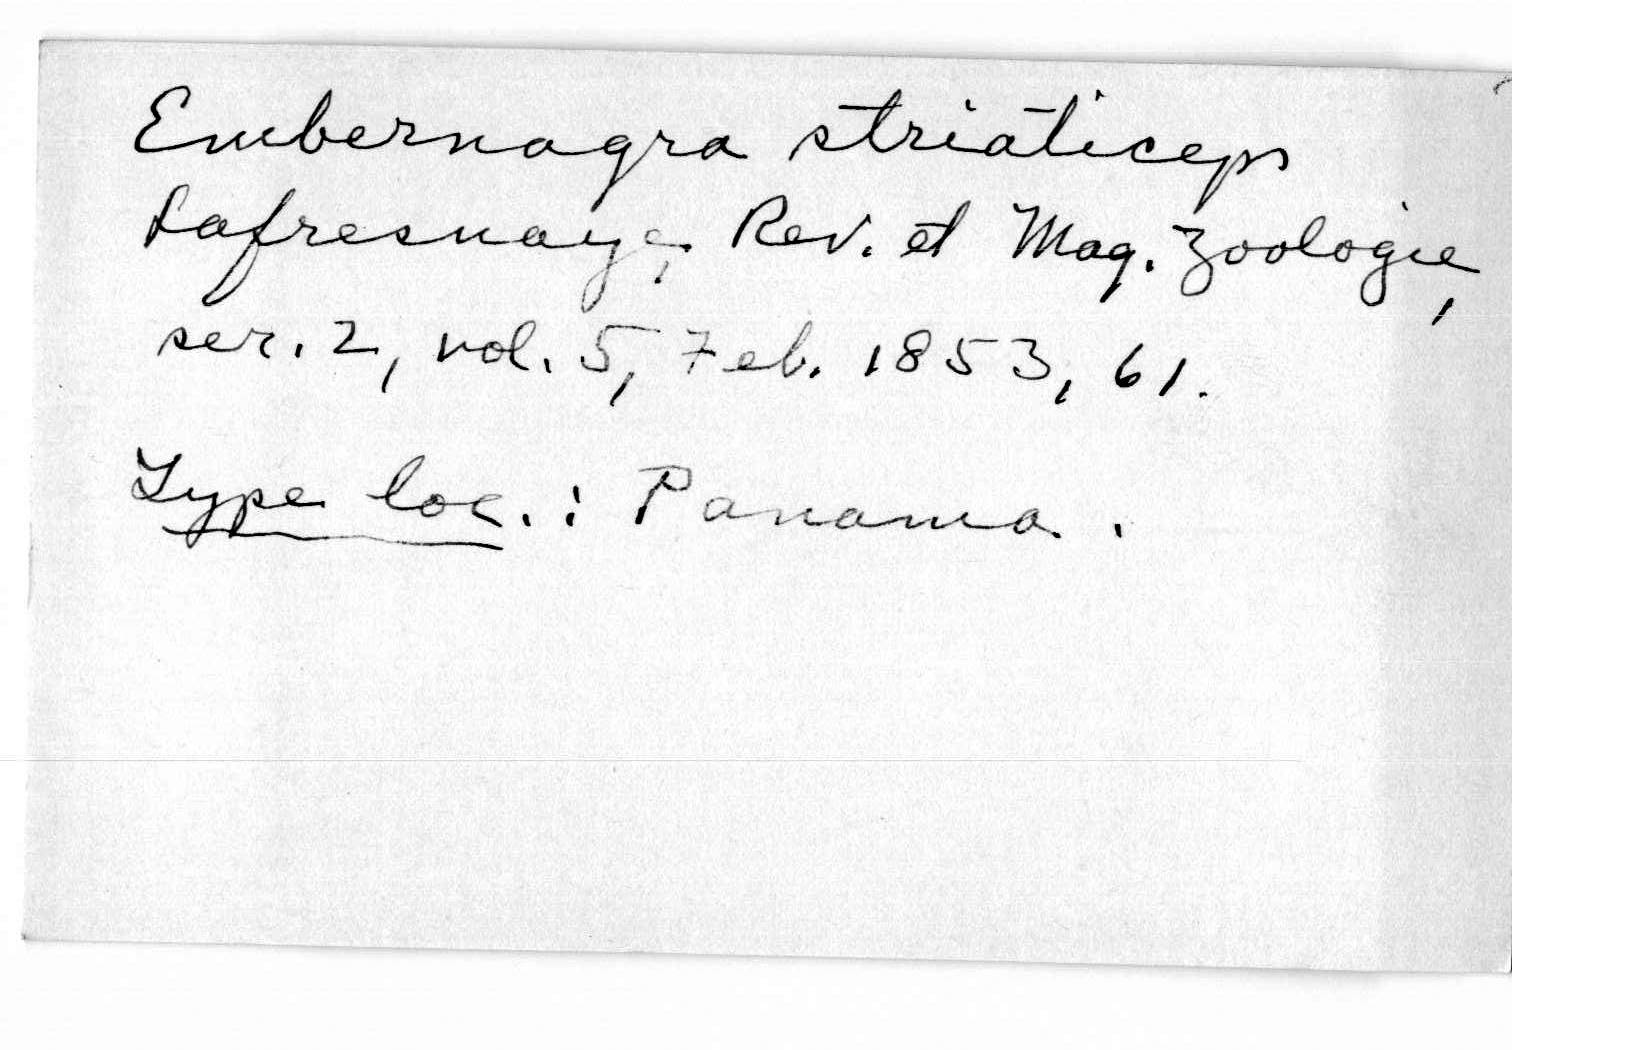 Embernagra striaticeps
Lafresnaye, Rev. et Mag. Zoologie,
ser. 2, vol. 5, Feb. 1853, 61.
Type loc.: Panama.